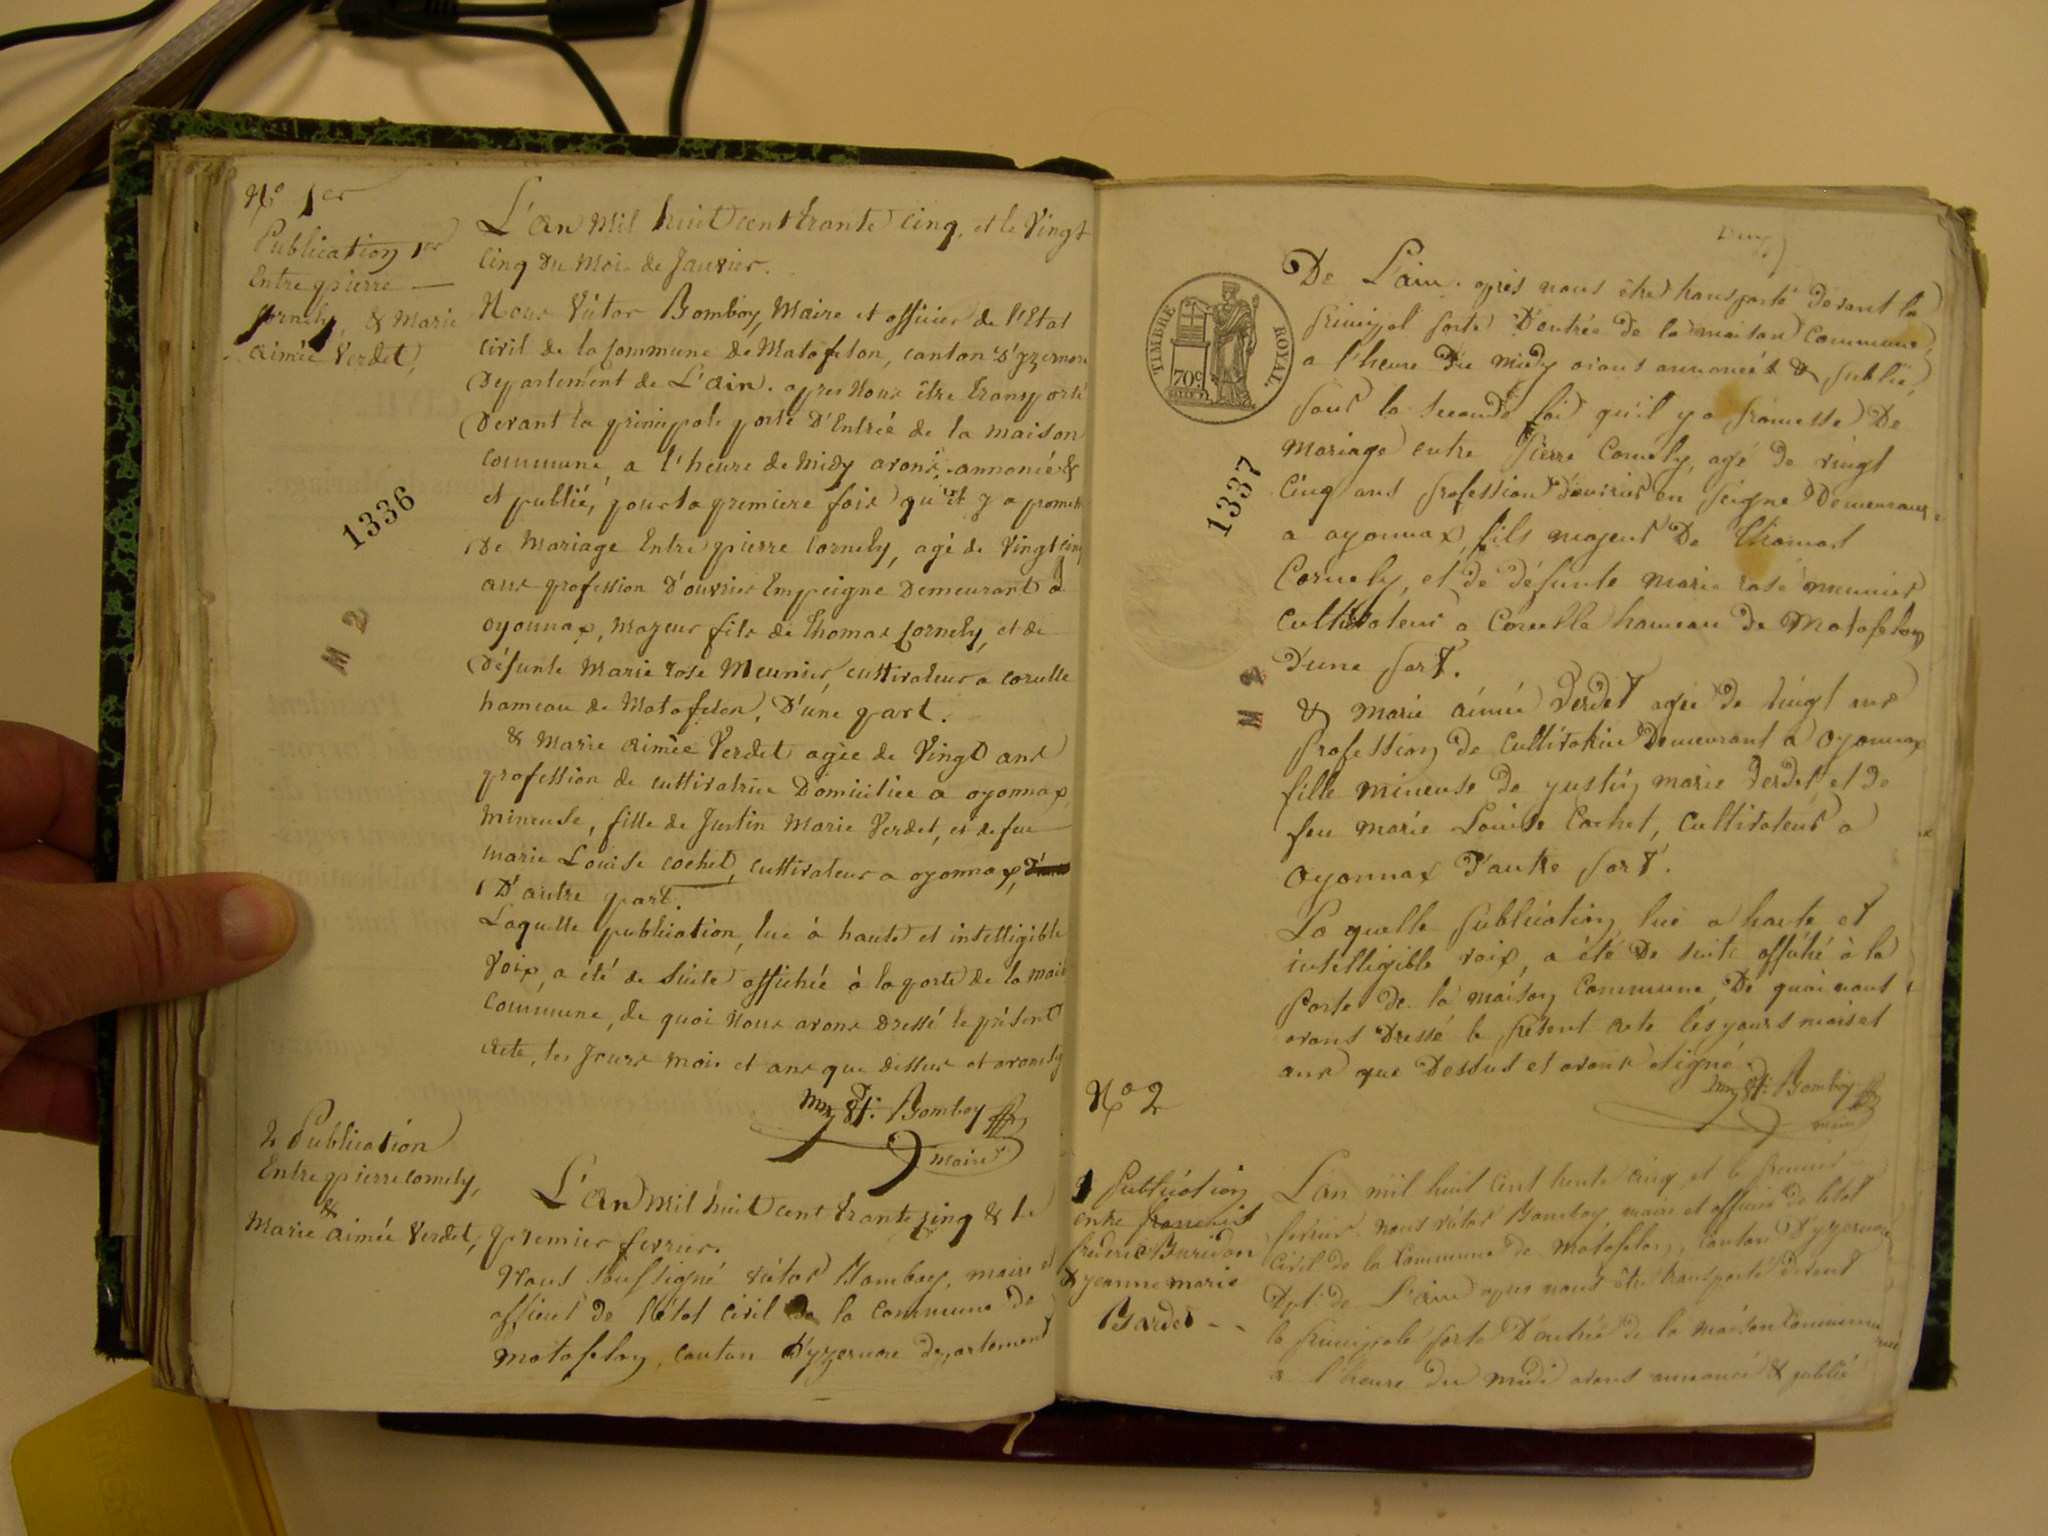 No 1er
Publication 1re
Entre pierre
Cornely, & Marie
aimée Verdet,
L'an Mil huit cent trante cinq, et le Vingt
Cinq du Mois de Janvier.
Nous Victor Bomboy, Maire et officier de l'Etat
civil de la Commune de Matafelon, canton d'yzernore
Departement de L'ain. apres Nous être transporté
Devant la principale porte D'Entrée de la maison
commune, a l'heure de Midy avons annoncé &
et publié, pour la premiere fois qu'il y a promesse
De Mariage Entre pierre Cornely, agé de Vingt cinq
ans profession D'ouvrier Empeigne Demeurant a
oyonnax, Majeur fils de Thomas Cornely, et de
Défunte Marie rose Meunier, cultivateur a corcelle
hameau de Matafelon, D'une part.
& Marie aimée Verdet agée de Vingt ans
profession de cultivatrice Domiciliee a oyonnax,
Mineuse, fille de Justin Marie Verdet, et de feu
Marie Louise cochet, cultivateur a oyonnax,
D'autre part.
Laquelle publication, lue à haute et intelligible
Voix, a été de Suite affichée à la porte de la mais
commune, de quoi Nous avons dressé le présent
acte, les Jours mois et ans que dessus et avons
Bomboy
maire
1336
M 2
2 Publication
Entre pierre cornely,
&
Marie aimée Verdet,
L'an mil huit cent trante cinq & le
premier fevrier.
Nous soussigné victor Bomboy, maire et
officier de l'état civil de la commune de
matafelon, canton d'yzernore departement
De L'ain. après nous être transporté devant la
principal porte D'entrée de la maison commune,
a l'heure du midy avons annoncés & publié,
pour la seconde fois qu'il y a promesse De
mariage entre Pierre Cornely, agé de vingt
cinq ans profession d'ouvrier en peigne Demeurant
a oyonnax, fils majeur De Thomas
Cornely, et de défunte marie rose meunier
Cultivateur a Corcelle hameau de Matafelon
D'une part.
& marie aimée Verdet agée de vingt ans
Profession de cultivatrice Demeurant a Oyonnax
fille mineuse de justin marie Verdet et de
feu marie Louise Cochet, Cultivateur a
Oyonnax D'autre part.
La quelle publication, lue a haute et
intelligible voix, a été De suite affiché à la
porte de la maison Commune, De quoi nous
avons Dressé le présent acte les jours mois et
ans que Dessus et avons signé.
Bomboy
maire
TIMBRE ROYAL
70c
1337
M 2
No 2
1 Publication
entre francois
frederic Buridon
& jeanne marie
Bardet
L'an mil huit cent trente cinq et le premier
fevrier. nous victor Bomboy, maire et officier de l'etat
civil de la Commune de Matafelon, canton d'yzernore
Dpt. de L'ain apres nous être transporté devant
la principale porte D'entrée de la maison Commune
a l'heure du midi avons annoncé & publié